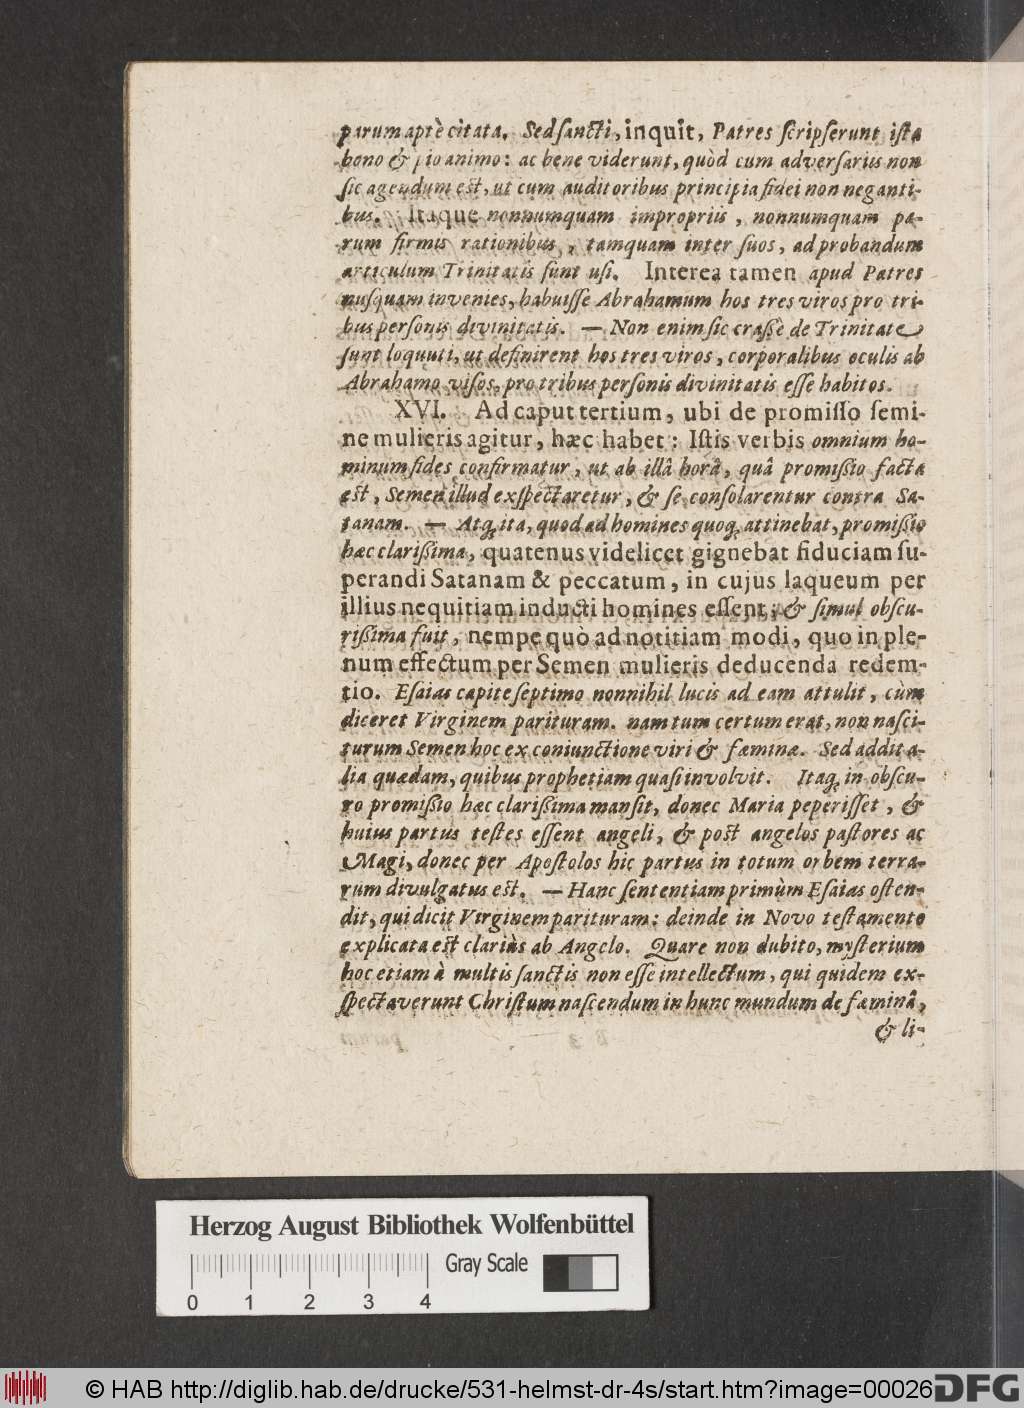 parum aptè citata. Sed ſancti, inquit, Patres ſcripſerunt iſta
bono & pio animo: ac bene viderunt, quòd cum adverſariis non
ſic agendum eſt, ut cum auditoribus principia fidei non neganti-
bus. Itaque nonnumquam impropriis, nonnumquam pa-
rum firmis rationibus, tamquam inter ſuos, ad probandum
articulum Trinitatis ſunt uſi. Interea tamen apud Patres
nuſquam invenies, habuiſſe Abrahamum hos tres viros pro tri-
bus perſonis divinitatis. — Non enim ſic craſſè de Trinitate
ſunt loquuti, ut definirent hos tres viros, corporalibus oculis ab
Abrahamo viſos, pro tribus perſonis divinitatis eſſe habitos.
XVI. Ad caput tertium, ubi de promiſſo ſemi-
ne mulieris agitur, hæc habet: Iſtis verbis omnium ho-
minum fides confirmatur, ut ab illâ horâ, quâ promiſſio facta
eſt, Semen illud exſpectaretur, & ſe conſolarentur contra Sa-
tanam. — Atq; ita, quod ad homines quoq; attinebat, promiſſio
hæc clariſſima, quatenus videlicet gignebat fiduciam ſu-
perandi Satanam & peccatum, in cujus laqueum per
illius nequitiam inducti homines eſſent; & ſimul obſcu-
riſſima fuit, nempe quò ad notitiam modi, quo in ple-
num effectum per Semen mulieris deducenda redem-
tio. Eſaias capite ſeptimo nonnihil lucis ad eam attulit, cùm
diceret Virginem parituram. nam tum certum erat, non naſci-
turum Semen hoc ex coniunctione viri & fæminæ. Sed addit a-
lia quædam, quibus prophetiam quaſi involvit. Itaq; in obſcu-
ro promiſſio hæc clariſſima manſit, donec Maria peperiſſet, &
huius partus teſtes eſſent angeli, & poſt angelos paſtores ac
Magi, donec per Apoſtolos hic partus in totum orbem terra-
rum divulgatus eſt. — Hanc ſententiam primùm Eſaias oſten-
dit, qui dicit Virginem parituram: deinde in Novo teſtamento
explicata eſt clariùs ab Angelo. Quare non dubito, myſterium
hoc etiam à multis ſanctis non eſſe intellectum, qui quidem ex-
ſpectaverunt Chriſtum naſcendum in hunc mundum de fæminâ,
& li-
Herzog August Bibliothek Wolfenbüttel
Gray Scale
0 1 2 3 4
© HAB http://diglib.hab.de/drucke/531-helmst-dr-4s/start.htm?image=00026
DFG